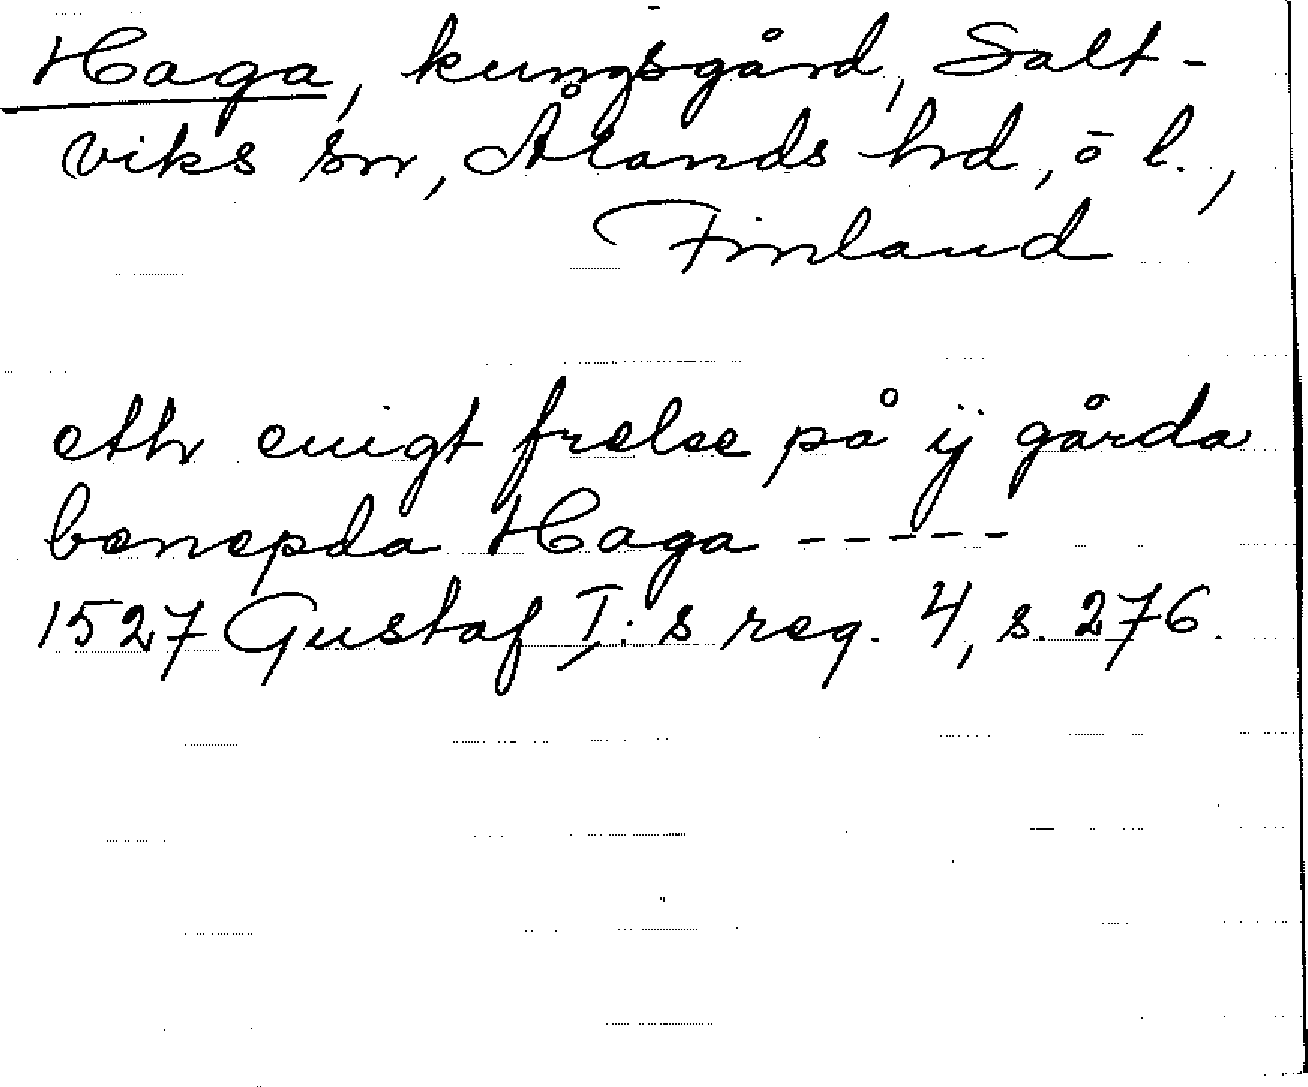 Haga, kungsgård, Salt-
viks sn, Ålands hd, ö l.,
Finland
eth euigt frelse på ij gårda
benepda Haga -----
1527 Gustaf I:s reg. 4, s. 276.